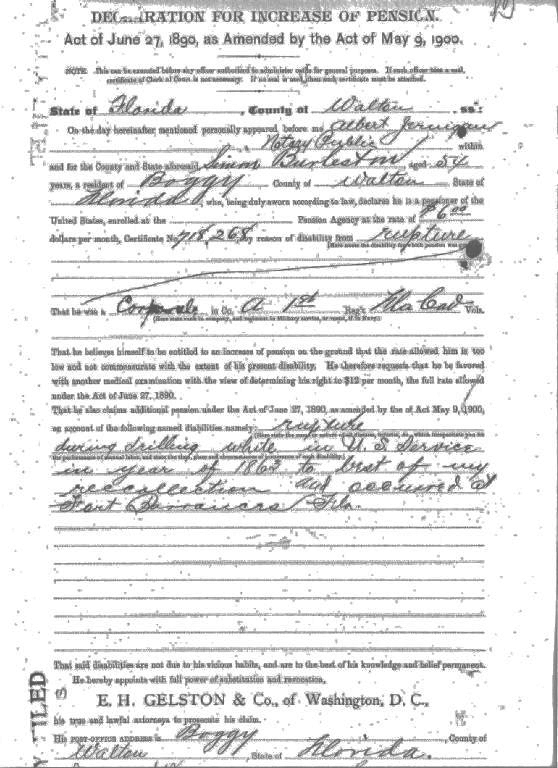 DECLARATION FOR INCREASE OF PENSION.
Act of June 27, 1890, as Amended by the Act of May 9, 1900.
NOTE. This can be executed before any officer authorized to administer oaths for general purposes. If such officer uses a seal,
certificate of Clerk of Court is not necessary. If no seal is used, then such certificate must be attached.
State of Florida, County of Walton ss:
On the day hereinafter mentioned personally appeared before me Albert Jernigan
Notary Public within
and for the County and State aforesaid, Simon Burleston aged 54
years, a resident of Boggy County of Walton State of
Florida, who, being duly sworn according to law, declares he is a pensioner of the
United States, enrolled at the Pension Agency at the rate of $6.00
dollars per month, Certificate No. 718,268, by reason of disability from rupture
(Here name the disability for which pension was granted)
That he was a Corporale in Co. A 1st Reg't Fla Cav Vols.
(Here state rank in company, and regiment in Military service, or vessel, if in Navy.)
That he believes himself to be entitled to an increase of pension on the ground that the rate allowed him is too
low and not commensurate with the extent of his present disability. He therefore requests that he be favored
with another medical examination with the view of determining his right to $12 per month, the full rate allowed
under the Act of June 27, 1890.
That he also claims additional pension under the Act of June 27, 1890, as amended by the of Act May 9, 1900,
on account of the following named disabilities namely: rupture
during drilling while in U.S. Service
in year of 1863 to best of my
reccollection and occurred at
Fort Barrancas Fla.
That said disabilities are not due to his vicious habits, and are to the best of his knowledge and belief permanent.
He hereby appoints with full power of substitution and revocation,
E. H. GELSTON & Co., of Washington, D. C.,
his true and lawful attorneys to prosecute his claim.
His POST-OFFICE ADDRESS is Boggy, County of
Walton, State of Florida.
FILED